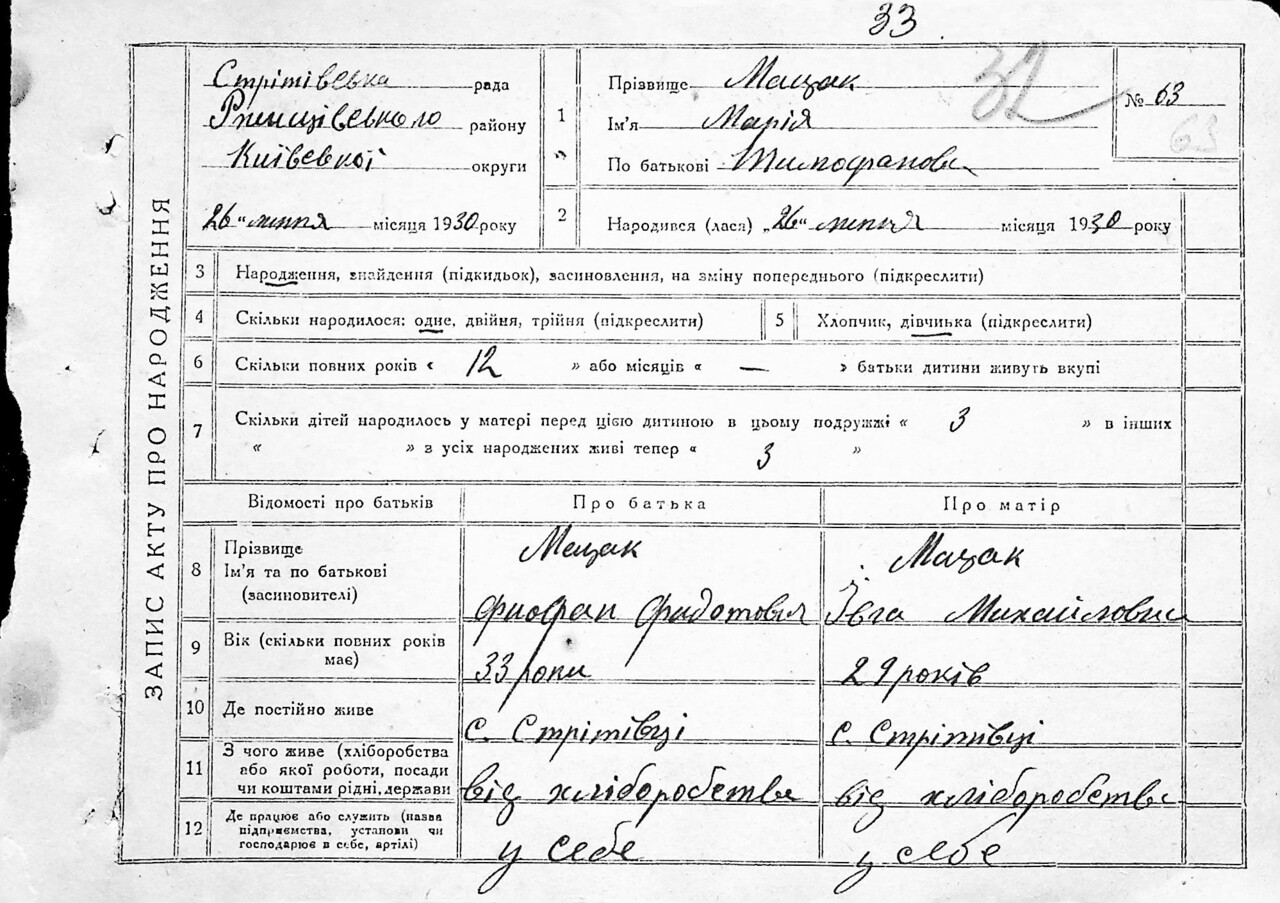 33
32
ЗАПИС АКТУ ПРО НАРОДЖЕННЯ
Стрітівська рада
Ржищівського району
Київської округи
26 " липня місяця 1930 року
1 Прізвище Мацак
Ім'я Марія
По батькові
№ 63
63
2 Народився (лась) „26" липня місяця 1930 року
3 Народження, знайдення (підкидьок), засиновлення, на зміну попереднього (підкреслити)
4 Скільки народилося: одне, двійня, трійня (підкреслити)
5 Хлопчик, дівчинька (підкреслити)
6 Скільки повних років « 12 » або місяців « — » батьки дитини живуть вкупі
7 Скільки дітей народилось у матері перед цією дитиною в цьому подружжі « 3 » в інших
« » з усіх народжених живі тепер « 3 »
Відомості про батьків Про батька Про матір
8 Прізвище
Ім'я та по батькові
(засиновителі)
Мацак
Федотович
Мацак
Івга Михайловна
9 Вік (скільки повних років
має)
33 роки
29 років
10 Де постійно живе
с. Стрітівці
с. Стрітівці
11 З чого живе (хліборобства
або якої роботи, посади
чи коштами рідні, держави
від хліборобства
від хліборобства
12 Де працює або служить (назва
підприємства, установи чи
господарює в себе, артілі)
у себе
у себе